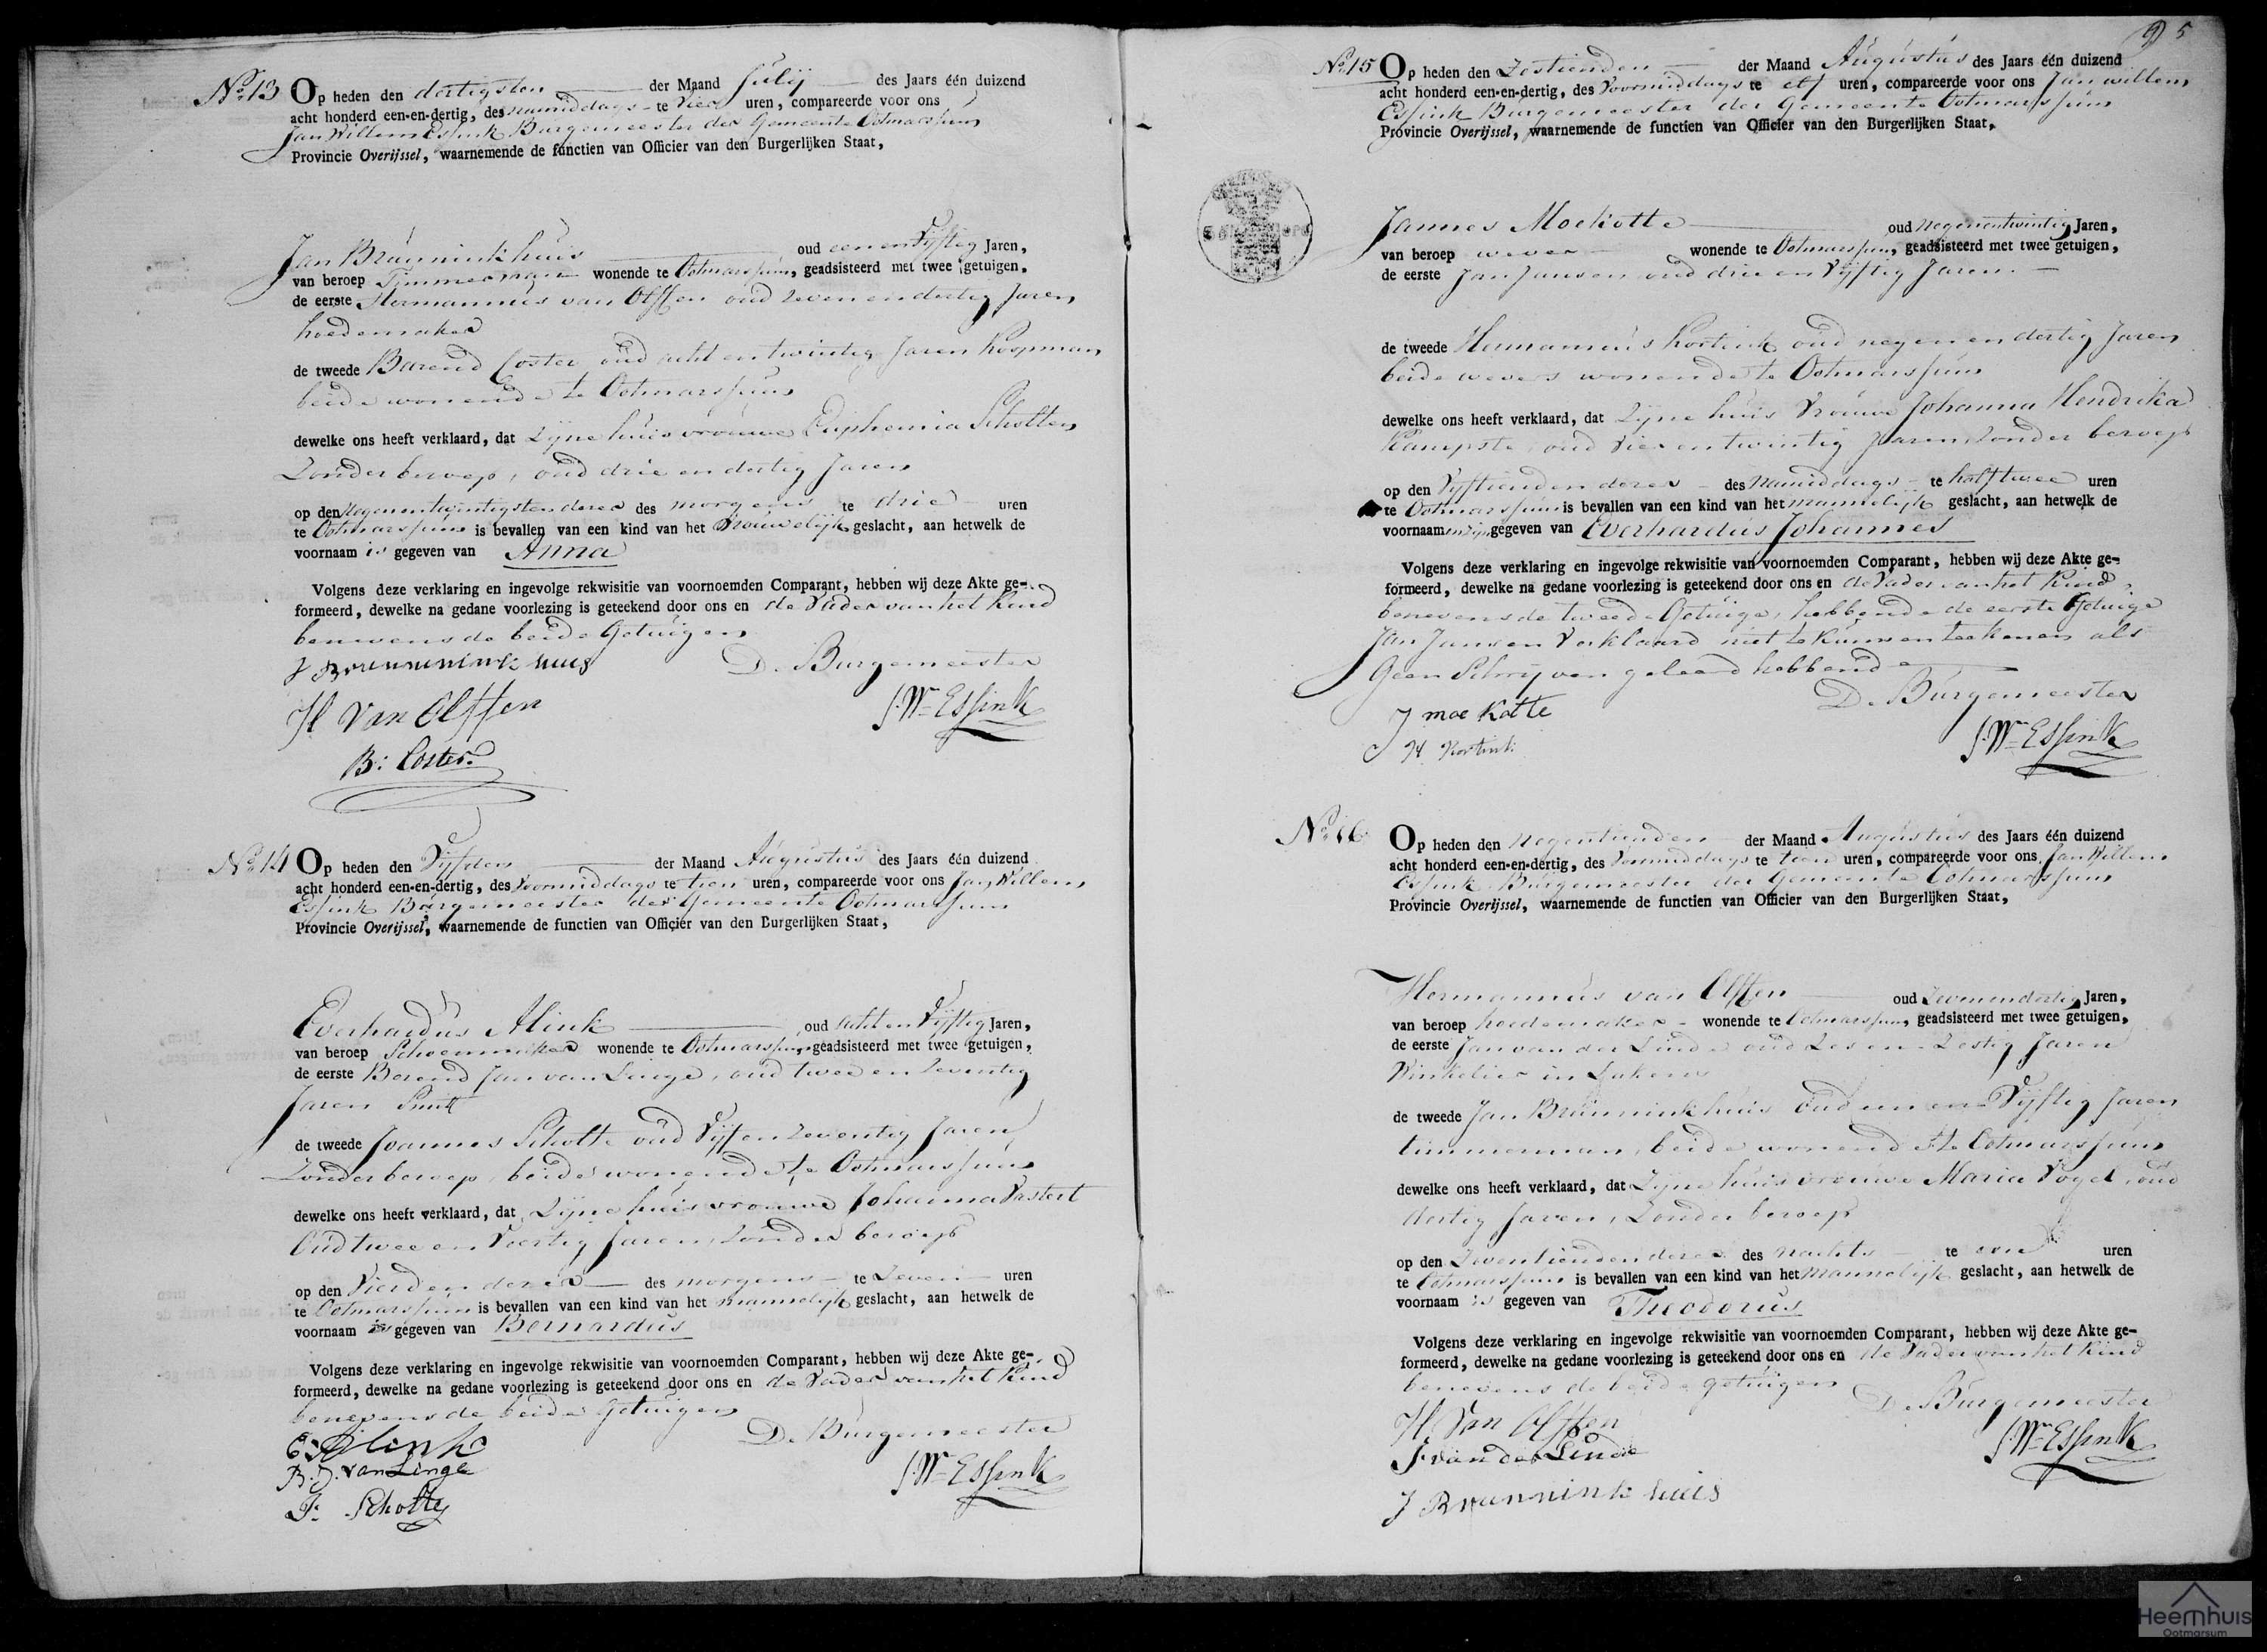 No. 13 Op heden den dertigsten der Maand Julij des Jaars één duizend
acht honderd een-en-dertig, des namiddags te vier uren, compareerde voor ons
Jan Willem Essink Burgemeester der Gemeente Ootmarssum
Provincie Overijssel, waarnemende de functien van Officier van den Burgerlijken Staat,
Jan Brunninkhuis oud een en vijftig Jaren,
van beroep Timmerman wonende te Ootmarssum, geadsisteerd met twee getuigen,
de eerste Hermannus van Olffen oud zeven en dertig Jaren
hoedemaker
de tweede Barend Coster oud acht en twintig Jaren Koopman
beide wonende te Ootmarssum
dewelke ons heeft verklaard, dat zijne huisvrouwe Euphemia Scholten
zonder beroep, oud drie en dertig Jaren
op den negenentwintigsten dezer des morgens te drie uren
te Ootmarssum is bevallen van een kind van het vrouwelijk geslacht, aan hetwelk de
voornaam is gegeven van Anna
Volgens deze verklaring en ingevolge rekwisitie van voornoemden Comparant, hebben wij deze Akte ge-
formeerd, dewelke na gedane voorlezing is geteekend door ons en de Vader van het Kind
benevens de beide Getuigen
J Brunninkhuis De Burgemeester
H Van Olffen J. Wm Essink
B: Coster
No. 14 Op heden den Vijfden der Maand Augustus des Jaars één duizend
acht honderd een-en-dertig, des voormiddags te tien uren, compareerde voor ons Jan Willem
Essink Burgemeester der Gemeente Ootmarssum
Provincie Overijssel, waarnemende de functien van Officier van den Burgerlijken Staat,
Everhardus Alink oud acht en Vijftig Jaren,
van beroep Schoenmaker wonende te Ootmarssum, geadsisteerd met twee getuigen,
de eerste Berend Jan van Linge, oud twee en zeventig
Jaren Smit
de tweede Joannes Scholte oud Vijf en zeventig Jaren
zonder beroep, beide wonende te Ootmarssum
dewelke ons heeft verklaard, dat zijne huisvrouwe Johanna Vastert
oud twee en Veertig Jaren zonder beroep
op den Vierden dezer des morgens te zeven uren
te Ootmarssum is bevallen van een kind van het mannelijk geslacht, aan hetwelk de
voornaam is gegeven van Bernardus
Volgens deze verklaring en ingevolge rekwisitie van voornoemden Comparant, hebben wij deze Akte ge-
formeerd, dewelke na gedane voorlezing is geteekend door ons en de Vader van het Kind
benevens de beide Getuigen
E: Alink De Burgemeester
B. J. van Linge J. Wm Essink
J: Scholte
95
No. 15 Op heden den Zestienden der Maand Augustus des Jaars één duizend
acht honderd een-en-dertig, des Voormiddags te elf uren, compareerde voor ons Jan Willem
Essink Burgemeester der Gemeente Ootmarssum
Provincie Overijssel, waarnemende de functien van Officier van den Burgerlijken Staat,
Jannes Moekotte oud negenentwintig Jaren,
van beroep wever wonende te Ootmarssum, geadsisteerd met twee getuigen,
de eerste Jan Jansen oud drie en Vijftig Jaren.
de tweede Hermannus Kortink oud negen en dertig Jaren
beide wevers wonende te Ootmarssum
dewelke ons heeft verklaard, dat zijne huis Vrouwe Johanna Hendrika
Kampste, oud vier en twintig Jaren, zonder beroep
op den Vijftienden dezer des Namiddags te half twee uren
te Ootmarssum is bevallen van een kind van het mannelijk geslacht, aan hetwelk de
voornaamen zijn gegeven van Everhardus Johannes
Volgens deze verklaring en ingevolge rekwisitie van voornoemden Comparant, hebben wij deze Akte ge-
formeerd, dewelke na gedane voorlezing is geteekend door ons en de Vader van het Kind,
benevens de tweede Getuige, hebbende de eerste Getuige
Jan Jansen Verklaard niet te kunnen teekenen als
Geen Schrijven geleerd hebbende
De Burgemeester
J moekotte J. Wm Essink
H Kortink
No. 16 Op heden den Negentienden der Maand Augustus des Jaars één duizend
acht honderd een-en-dertig, des Voormiddags te tien uren, compareerde voor ons Jan Willem
Essink Burgemeester der Gemeente Ootmarssum
Provincie Overijssel, waarnemende de functien van Officier van den Burgerlijken Staat,
Hermannus van Olffen oud Zevenendertig Jaren,
van beroep hoedemaker wonende te Ootmarssum, geadsisteerd met twee getuigen,
de eerste Jan van der Linde oud Zes en Zestig Jaren
Winkelier in Lakens
de tweede Jan Brunninkhuis oud een en Vijftig Jaren
timmerman, beide wonende te Ootmarssum
dewelke ons heeft verklaard, dat Zijne huisvrouwe Maria Vogel, oud
dertig Jaren, zonder beroep
op den Zeventienden dezer des nachts te een uren
te Ootmarssum is bevallen van een kind van het mannelijk geslacht, aan hetwelk de
voornaam is gegeven van Theodorus
Volgens deze verklaring en ingevolge rekwisitie van voornoemden Comparant, hebben wij deze Akte ge-
formeerd, dewelke na gedane voorlezing is geteekend door ons en de Vader van het Kind
benevens de beide getuigen De Burgemeester
H. Van Olffen J. Wm Essink
J van der Linde
J Brunninkhuis
Heemhuis
Ootmarsum